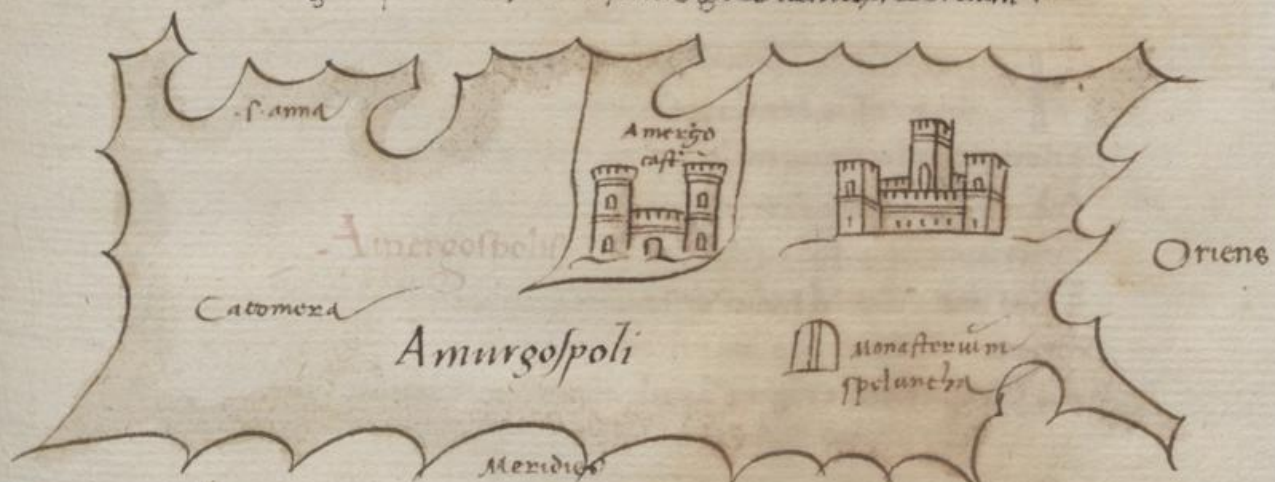 .S. anna
Amergo
cast
Amergospolis
Oriens
Catomera
Amurgospoli
Monasterium
speluncha
Meridies